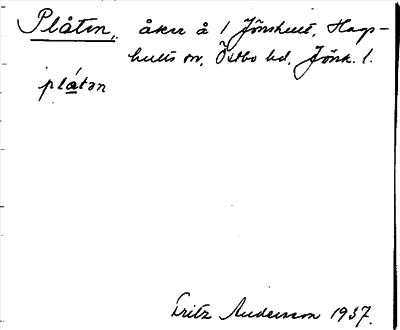 Plåten, åker å 1 Jönshult, Hags-
hults sn, Östbo hd, Jönk. l.
plåtən
Fritz Andersson 1937.